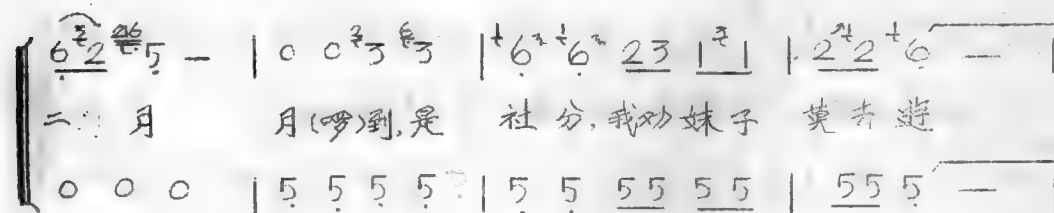 6 2 5 — | 0 0 3 3 | 6 6 23 11 | 22 6 —
二月 月(啰)到,是 社分,我劝妹子 莫去遊
0 0 0 | 5 5 5 5 | 5 5 55 55 | 55 5 —